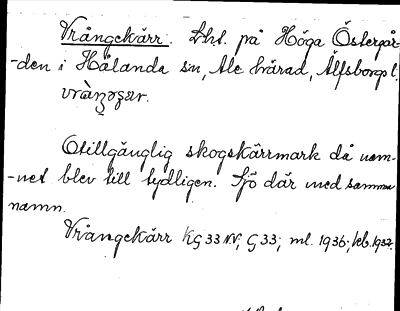 Vrångekärr. Lht. på Höga Östergår-
-den i Hålanda sn, Ale härad, Älfsborgs l.
Otillgänglig skogskärrmark då nam-
-net blev till tydligen. Sjö där med samma
namn.
Vrångekärr KG 33 NV; G 33; ml. 1936; feb. 1937.